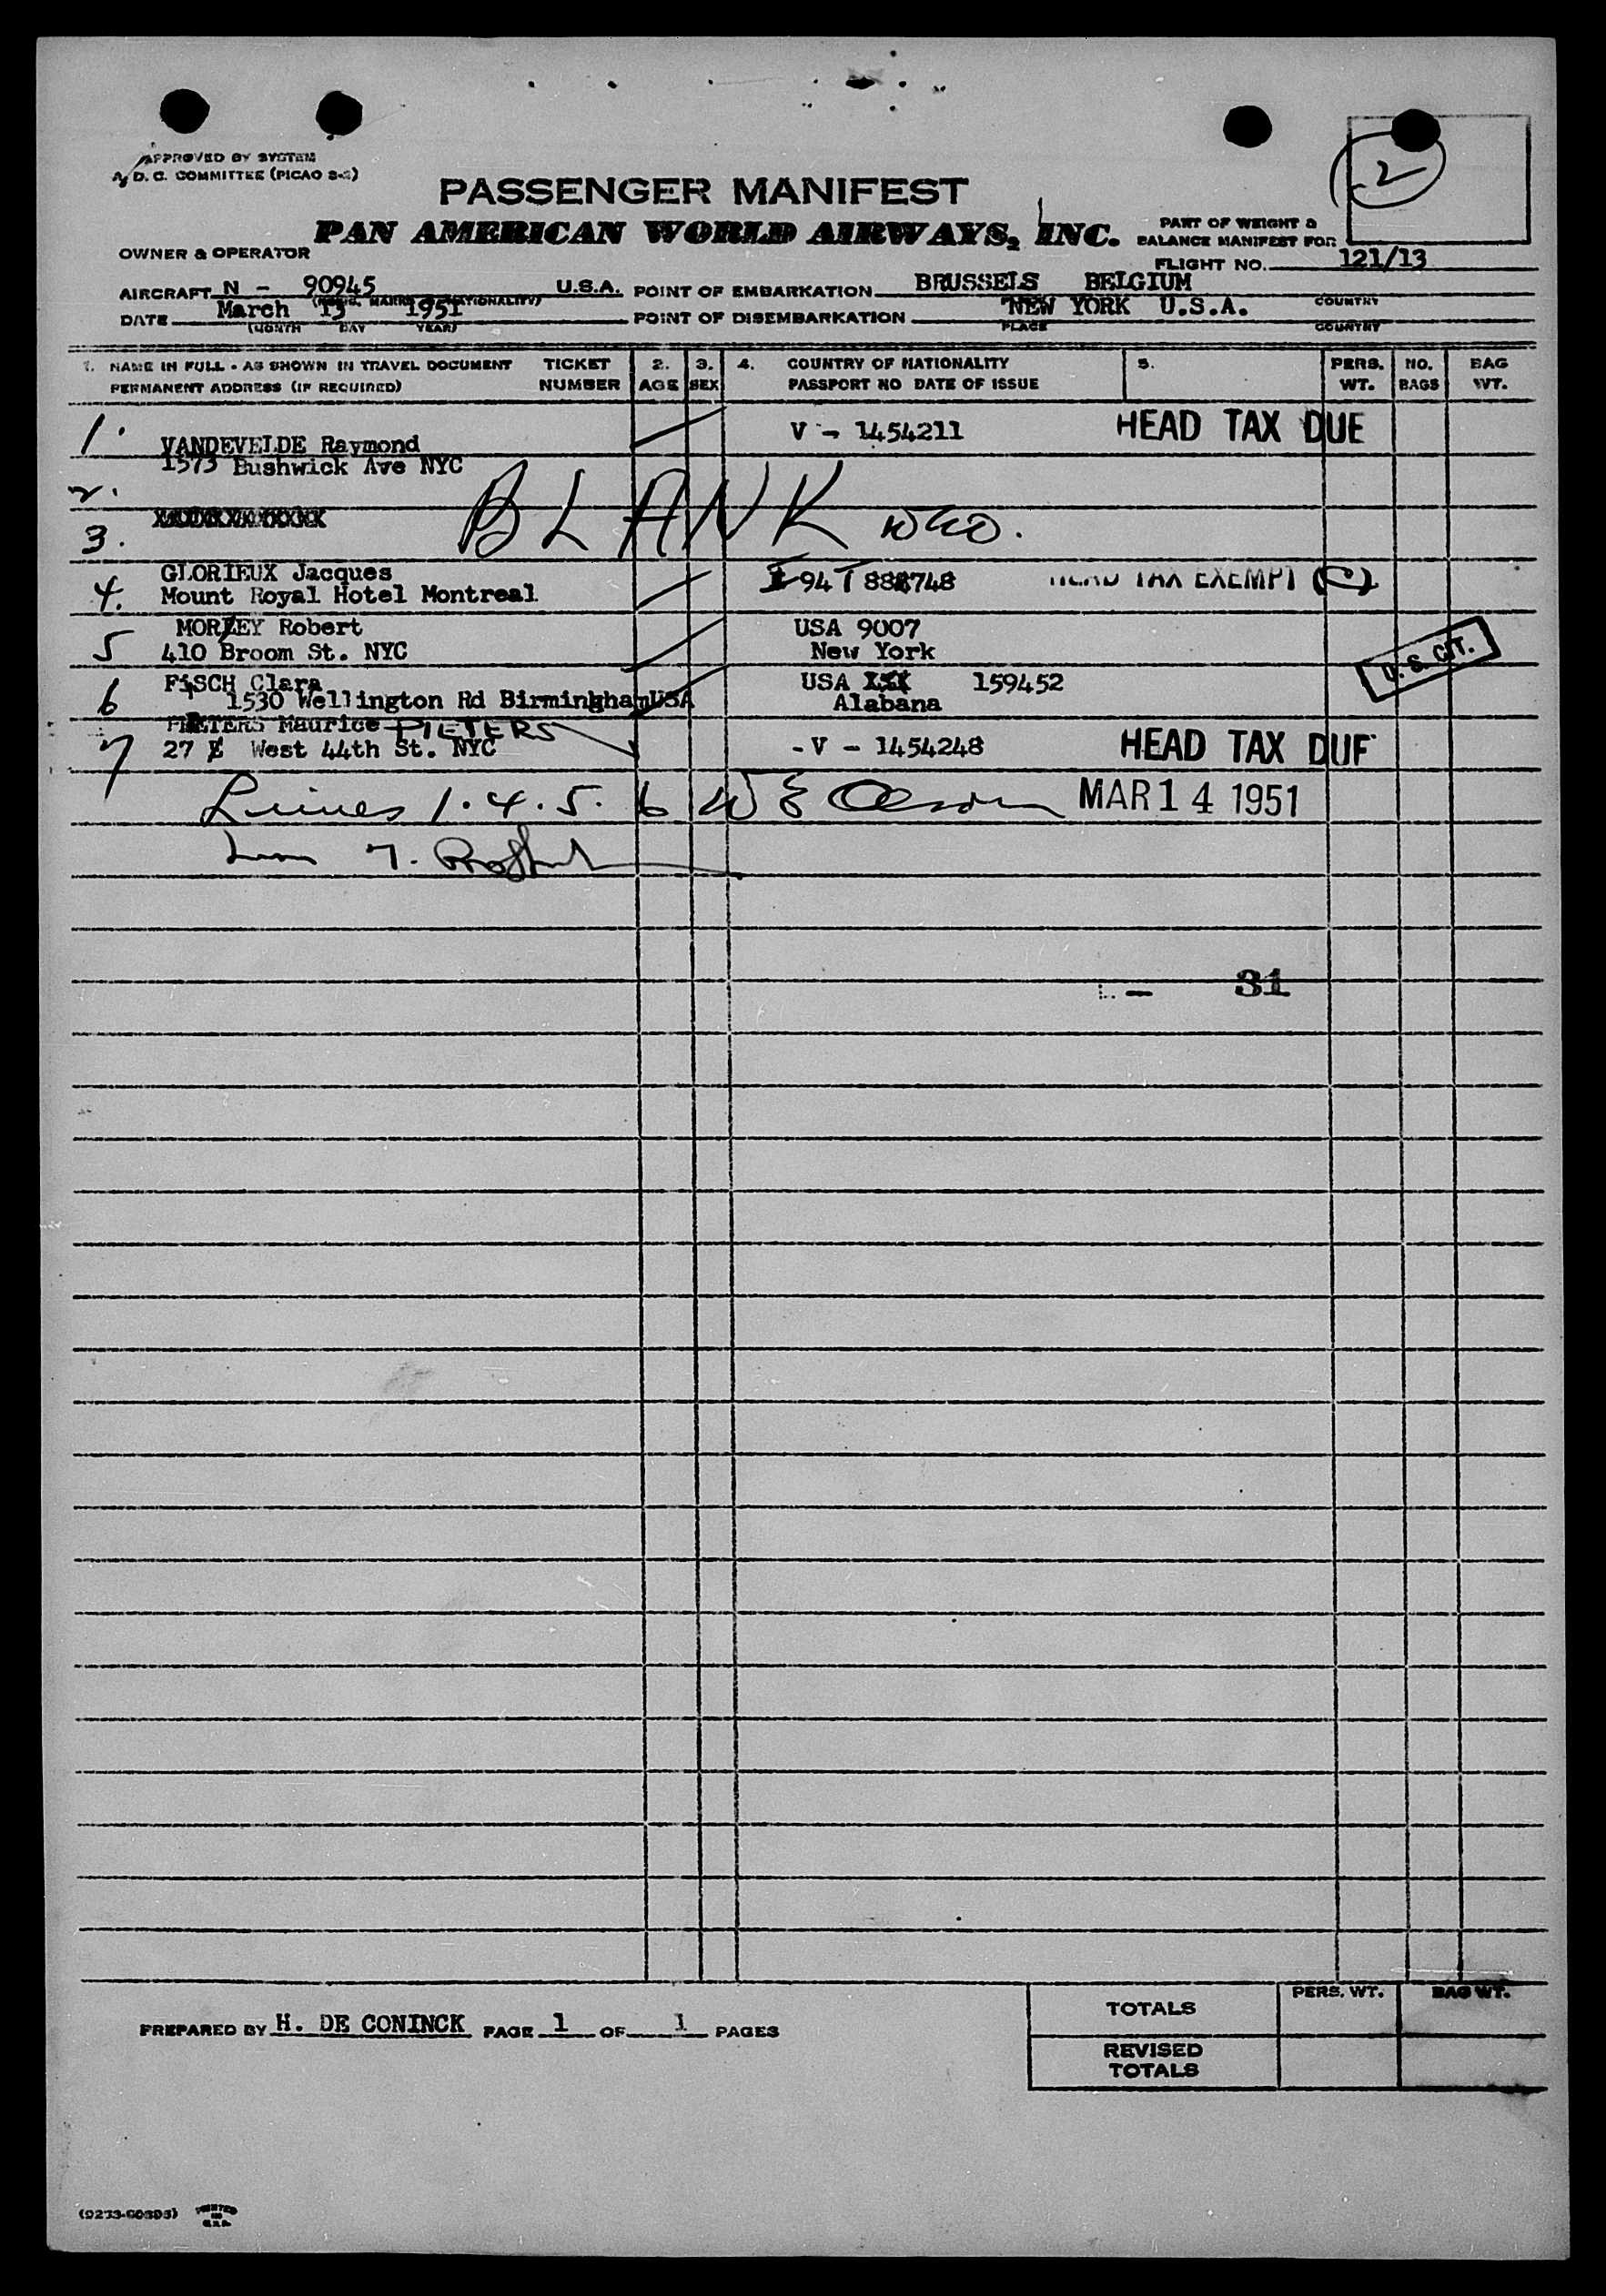 APPROVED BY SYSTEM
A.D.C. COMMITTEE (PICAO S-2)
2
PASSENGER MANIFEST
PAN AMERICAN WORLD AIRWAYS, INC.
PART OF WEIGHT &
BALANCE MANIFEST FOR
OWNER & OPERATOR
FLIGHT NO. 121/13
AIRCRAFT N - 90945 U.S.A. POINT OF EMBARKATION BRUSSELS BELGIUM
DATE March 13 1951 POINT OF DISEMBARKATION NEW YORK U.S.A. COUNTRY
(MONTH DAY YEAR) PLACE COUNTRY
1. NAME IN FULL - AS SHOWN IN TRAVEL DOCUMENT TICKET 2. 3. 4. COUNTRY OF NATIONALITY 5. PERS. NO. BAG
PERMANENT ADDRESS (IF REQUIRED) NUMBER AGE SEX PASSPORT NO DATE OF ISSUE WT. BAGS WT.
1. VANDEVELDE Raymond V - 1454211 HEAD TAX DUE
1573 Bushwick Ave NYC
2.
3. BLANK WEO.
GLORIEUX Jacques 94 T 888748 HEAD TAX EXEMPT (C)
4. Mount Royal Hotel Montreal
MORLEY Robert USA 9007
5 410 Broom St. NYC New York U. S. CIT.
FiSCH Clara USA 159452
6 1530 Wellington Rd Birmingham USA Alabana
PIETERS Maurice PIETERS
7 27 West 44th St. NYC - V - 1454248 HEAD TAX DUE
Lines 1. 4. 5. 6 W E Olson MAR 14 1951
7.
31
PREPARED BY H. DE CONINCK PAGE 1 OF 1 PAGES
TOTALS PERS. WT. BAG WT.
REVISED
TOTALS
PRINTED
IN
U.S.A.